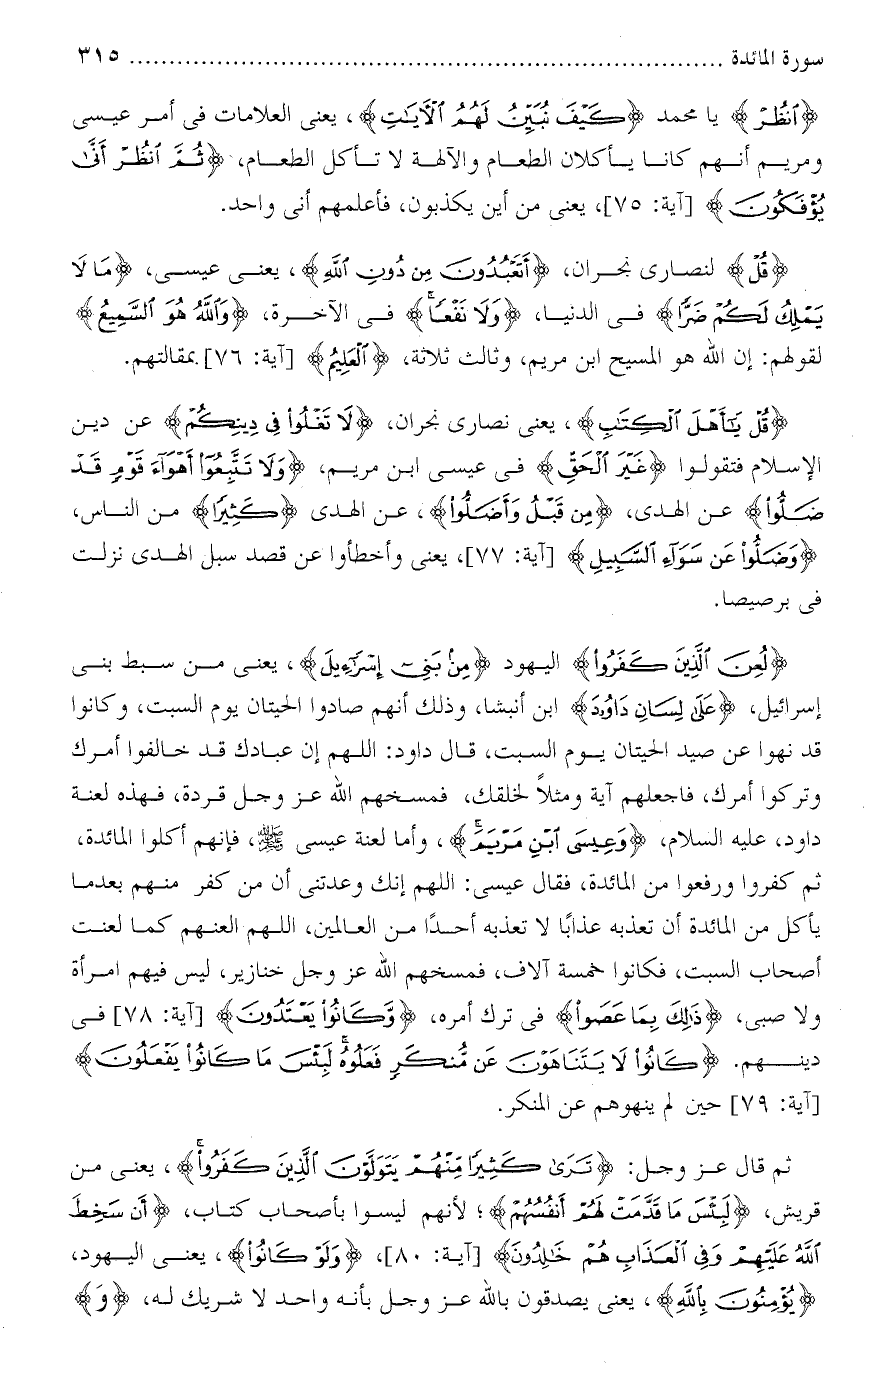 سورة المائدة ........................................................................ ٣١٥
﴿ٱنظُرْ﴾ يا محمد ﴿كَيْفَ نُبَيِّنُ لَهُمُ ٱلْآيَاتِ﴾، يعنى العلامات فى أمر عيسى
ومريم أنهم كانا يأكلان الطعام والآلهة لا تأكل الطعام، ﴿ثُمَّ ٱنظُرْ أَنَّىٰ
يُؤْفَكُونَ﴾ [آية: ٧٥]، يعنى من أين يكذبون، فأعلمهم أنى واحد.
﴿قُلْ﴾ لنصارى نجران، ﴿أَتَعْبُدُونَ مِن دُونِ ٱللَّهِ﴾، يعنى عيسى، ﴿مَا لَا
يَمْلِكُ لَكُمْ ضَرًّا﴾ فى الدنيا، ﴿وَلَا نَفْعًا﴾ فى الآخرة، ﴿وَٱللَّهُ هُوَ ٱلسَّمِيعُ﴾
لقولهم: إن الله هو المسيح ابن مريم، وثالث ثلاثة، ﴿ٱلْعَلِيمُ﴾ [آية: ٧٦] بمقالتهم.
﴿قُلْ يَٰٓأَهْلَ ٱلْكِتَٰبِ﴾، يعنى نصارى نجران، ﴿لَا تَغْلُوا۟ فِى دِينِكُمْ﴾ عن دين
الإسلام فتقولوا ﴿غَيْرَ ٱلْحَقِّ﴾ فى عيسى ابن مريم، ﴿وَلَا تَتَّبِعُوٓا۟ أَهْوَآءَ قَوْمٍ قَدْ
ضَلُّوا۟﴾ عن الهدى، ﴿مِن قَبْلُ وَأَضَلُّوا۟﴾، عن الهدى ﴿كَثِيرًا﴾ من الناس،
﴿وَضَلُّوا۟ عَن سَوَآءِ ٱلسَّبِيلِ﴾ [آية: ٧٧]، يعنى وأخطأوا عن قصد سبل الهدى نزلت
فى برصيصا.
﴿لُعِنَ ٱلَّذِينَ كَفَرُوا۟﴾ اليهود ﴿مِنۢ بَنِىٓ إِسْرَٰٓءِيلَ﴾، يعنى من سبط بنى
إسرائيل، ﴿عَلَىٰ لِسَانِ دَاوُۥدَ﴾ ابن أنبشا، وذلك أنهم صادوا الحيتان يوم السبت، وكانوا
قد نهوا عن صيد الحيتان يوم السبت، قال داود: اللهم إن عبادك قد خالفوا أمرك
وتركوا أمرك، فاجعلهم آية ومثلاً لخلقك، فمسخهم الله عز وجل قردة، فهذه لعنة
داود، عليه السلام، ﴿وَعِيسَى ٱبْنِ مَرْيَمَ﴾، وأما لعنة عيسى ﷺ، فإنهم أكلوا المائدة،
ثم كفروا ورفعوا من المائدة، فقال عيسى: اللهم إنك وعدتنى أن من كفر منهم بعدما
يأكل من المائدة أن تعذبه عذابًا لا تعذبه أحدًا من العالمين، اللهم العنهم كما لعنت
أصحاب السبت، فكانوا خمسة آلاف، فمسخهم الله عز وجل خنازير، ليس فيهم امرأة
ولا صبى، ﴿ذَٰلِكَ بِمَا عَصَوا۟﴾ فى ترك أمره، ﴿وَّكَانُوا۟ يَعْتَدُونَ﴾ [آية: ٧٨] فى
دينهم. ﴿كَانُوا۟ لَا يَتَنَاهَوْنَ عَن مُّنكَرٍ فَعَلُوهُ لَبِئْسَ مَا كَانُوا۟ يَفْعَلُونَ﴾
[آية: ٧٩] حين لم ينهوهم عن المنكر.
ثم قال عز وجل: ﴿تَرَىٰ كَثِيرًا مِّنْهُمْ يَتَوَلَّوْنَ ٱلَّذِينَ كَفَرُوا۟﴾، يعنى من
قريش، ﴿لَبِئْسَ مَا قَدَّمَتْ لَهُمْ أَنفُسُهُمْ﴾؛ لأنهم ليسوا بأصحاب كتاب، ﴿أَن سَخِطَ
ٱللَّهُ عَلَيْهِمْ وَفِى ٱلْعَذَابِ هُمْ خَٰلِدُونَ﴾ [آية: ٨٠]، ﴿وَلَوْ كَانُوا۟﴾، يعنى اليهود،
﴿يُؤْمِنُونَ بِٱللَّهِ﴾، يعنى يصدقون بالله عز وجل بأنه واحد لا شريك له، ﴿وَ﴾